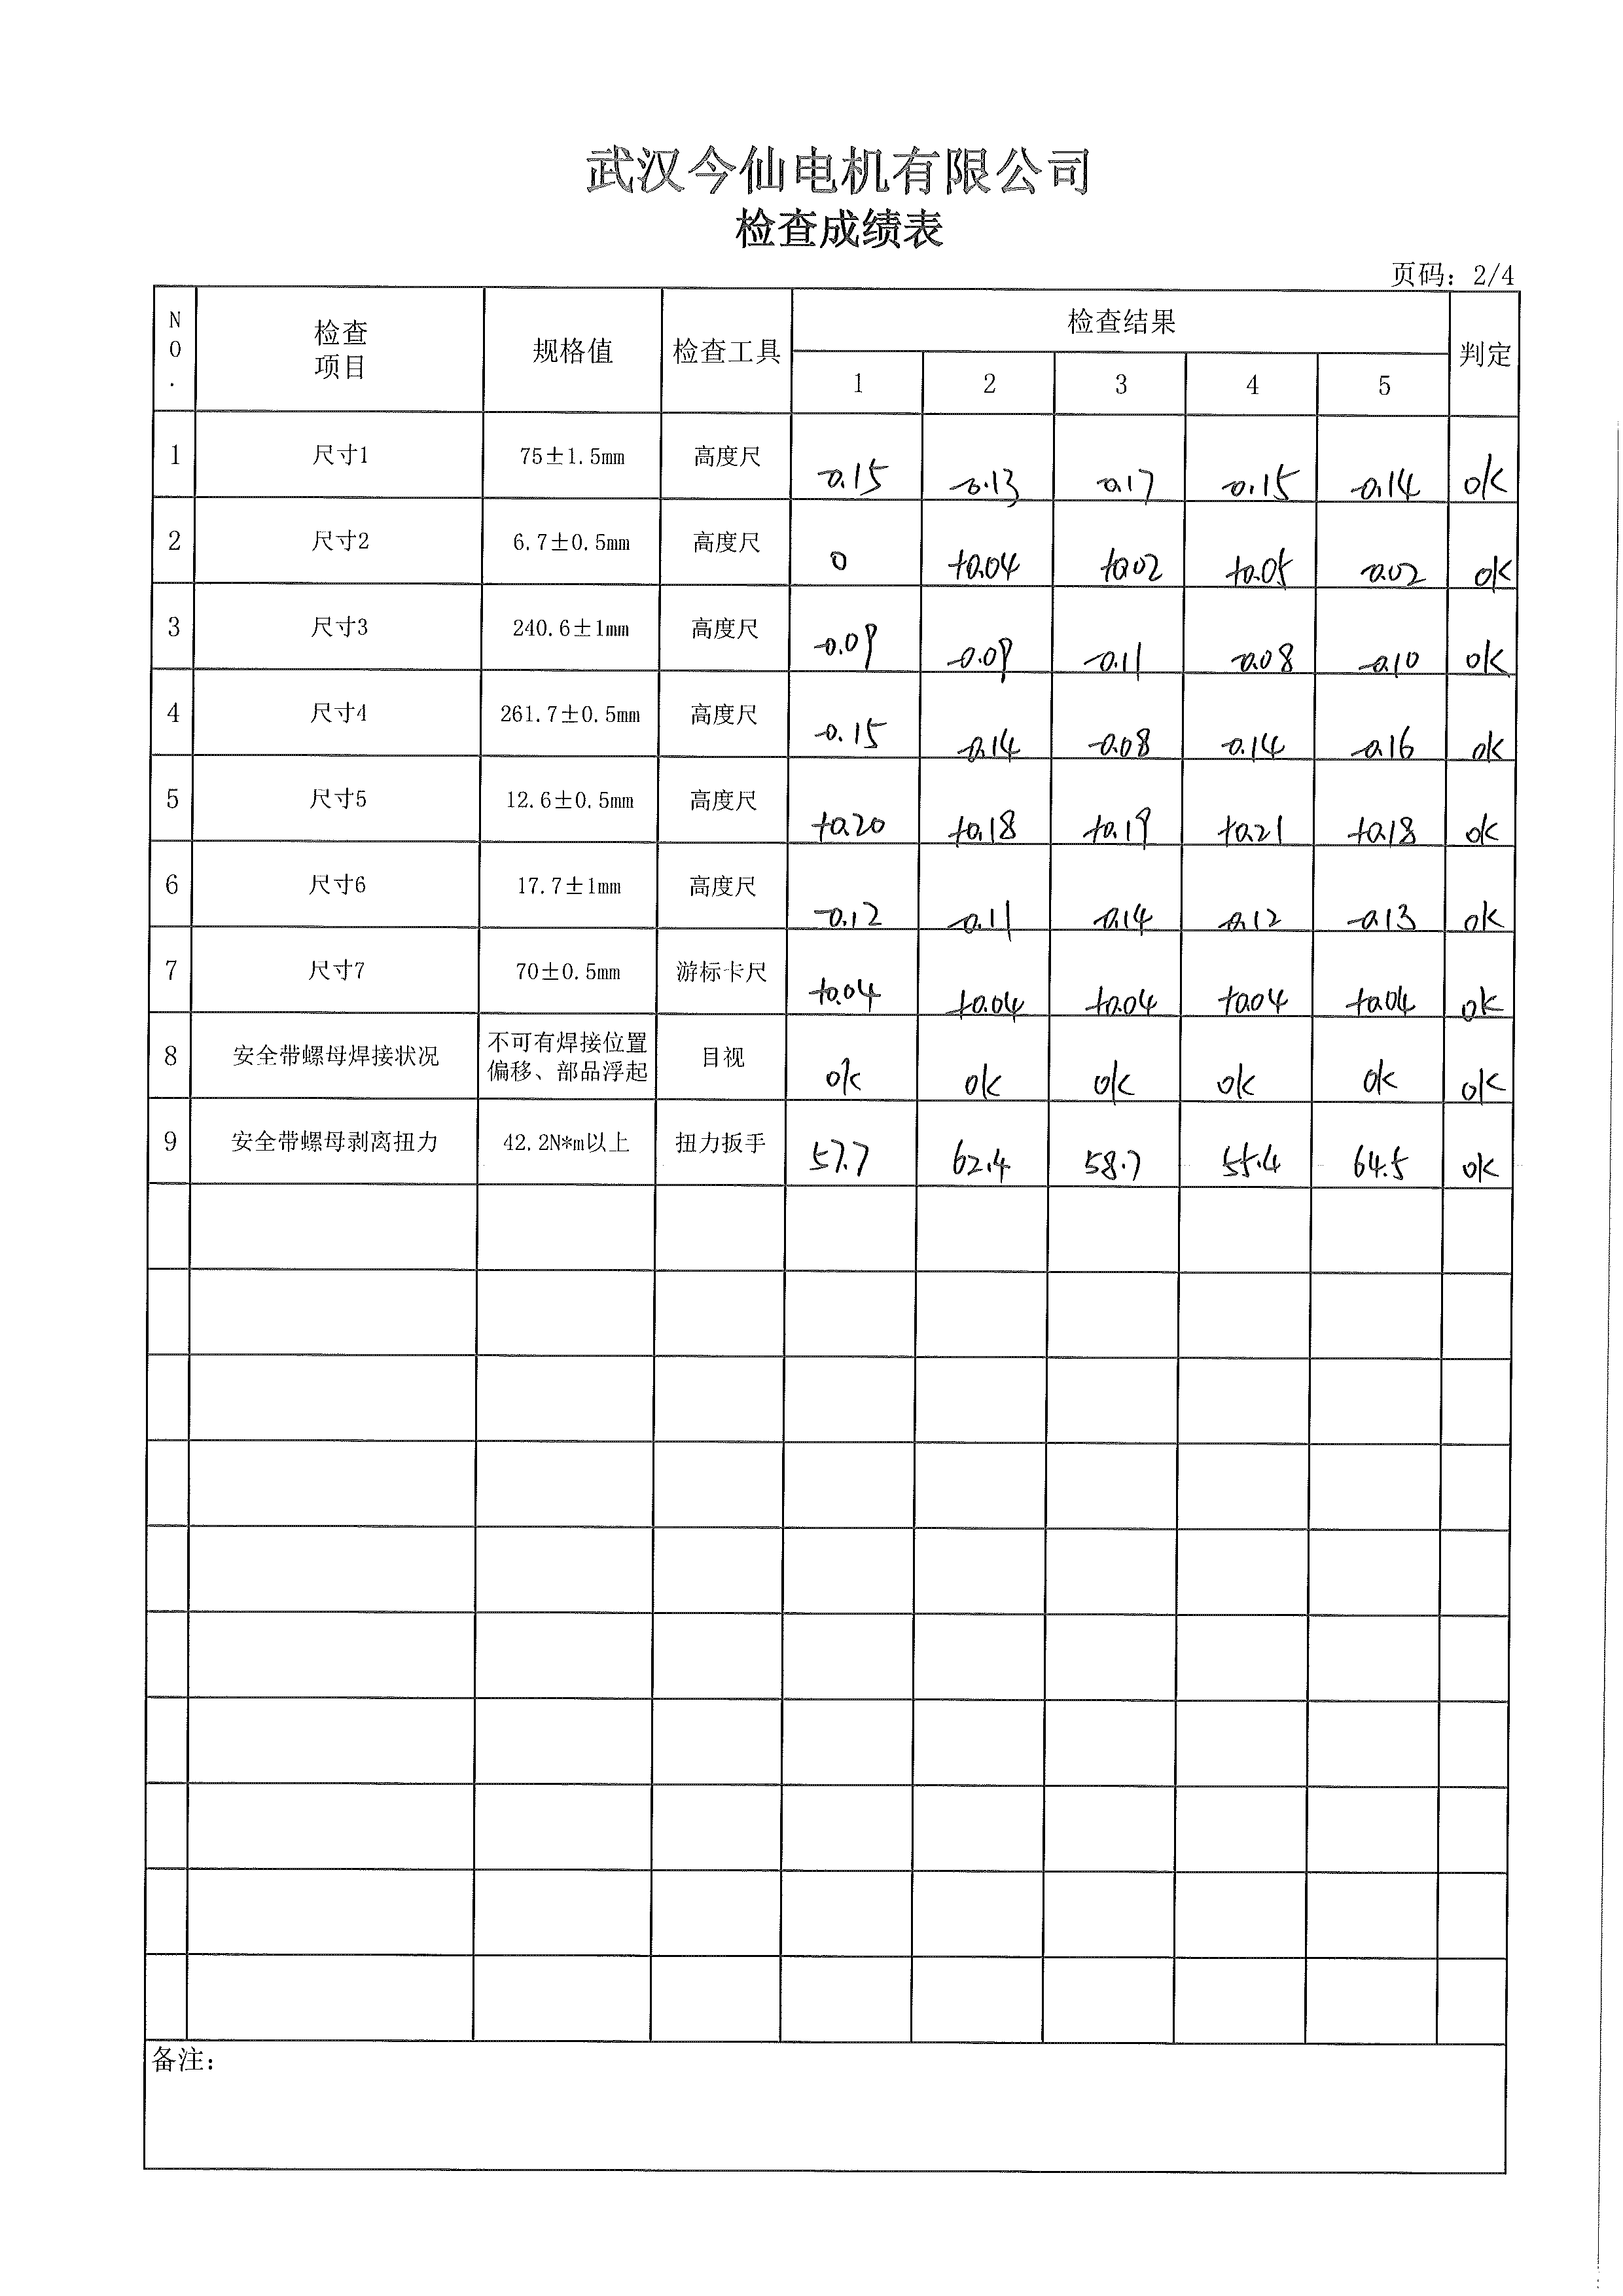 武汉今仙电机有限公司
检查成绩表
页码：2/4
NO. 检查项目 规格值 检查工具 检查结果 判定
1 2 3 4 5
1 尺寸1 75±1.5mm 高度尺 -0.15 -0.13 -0.17 -0.15 -0.14 ok
2 尺寸2 6.7±0.5mm 高度尺 0 +0.04 +0.02 +0.05 -0.02 ok
3 尺寸3 240.6±1mm 高度尺 -0.09 -0.09 -0.11 -0.08 -0.10 ok
4 尺寸4 261.7±0.5mm 高度尺 -0.15 -0.14 -0.08 -0.14 -0.16 ok
5 尺寸5 12.6±0.5mm 高度尺 +0.20 +0.18 +0.19 +0.21 +0.18 ok
6 尺寸6 17.7±1mm 高度尺 -0.12 -0.11 -0.14 -0.12 -0.13 ok
7 尺寸7 70±0.5mm 游标卡尺 +0.04 +0.04 +0.04 +0.04 +0.04 ok
8 安全带螺母焊接状况 不可有焊接位置偏移、部品浮起 目视 ok ok ok ok ok ok
9 安全带螺母剥离扭力 42.2N*m以上 扭力扳手 57.7 62.4 58.7 55.4 64.5 ok
备注：